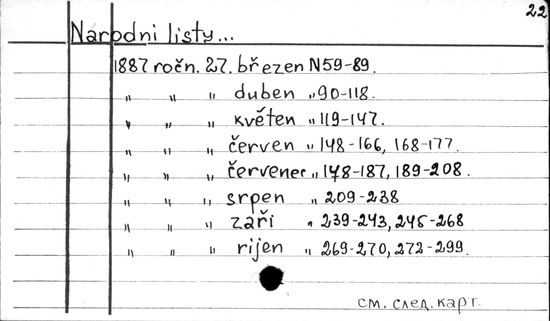 22
Narodni listy...
1887 ročn. 27. březen N59-89.
„ „ „ duben „90-118.
„ „ „ květen „119-147.
„ „ „ červen „148-166, 168-177.
„ „ „ červenec „178-187, 189-208.
„ „ „ srpen „ 209-238
„ „ „ září „ 239-243, 245-268
„ „ „ rijen „ 269-270, 272-299.
см. след. карт.